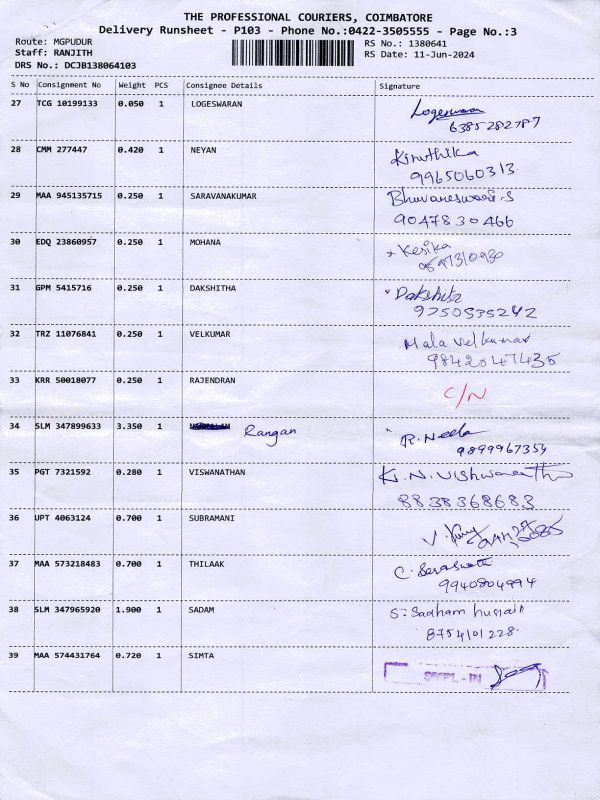 THE PROFESSIONAL COURIERS, COIMBATORE
Delivery Runsheet - P103 - Phone No.:0422-3505555 - Page No.:3
Route: MGPUDUR
Staff: RANJITH
DRS No.: DCJB138064103
RS No.: 1380641
RS Date: 11-Jun-2024
S No Consignment No Weight PCS Consignee Details Signature
27 TCG 10199133 0.050 1 LOGESWARAN Logeswaran
6385282787
28 CMM 277447 0.420 1 NEYAN Kiruthika
9965060313
29 MAA 945135715 0.250 1 SARAVANAKUMAR Bhuvaneswari.S
9047830466
30 EDQ 23860957 0.250 1 MOHANA Kesika
31 GPM 5415716 0.250 1 DAKSHITHA Dakshita
9750535242
32 TRZ 11076841 0.250 1 VELKUMAR Mala velkumar
9842047435
33 KRR 50018077 0.250 1 RAJENDRAN C/N
34 SLM 347899633 3.350 1 Rangan R. Neela
9899967354
35 PGT 7321592 0.280 1 VISWANATHAN K. N. Vishwanathan
8838368683
36 UPT 4063124 0.700 1 SUBRAMANI
37 MAA 573218483 0.700 1 THILAAK C. Saraswathi
9940804994
38 SLM 347965920 1.900 1 SADAM S. Sadham hussain
8754101228
39 MAA 574431764 0.720 1 SIMTA SMPL - IN